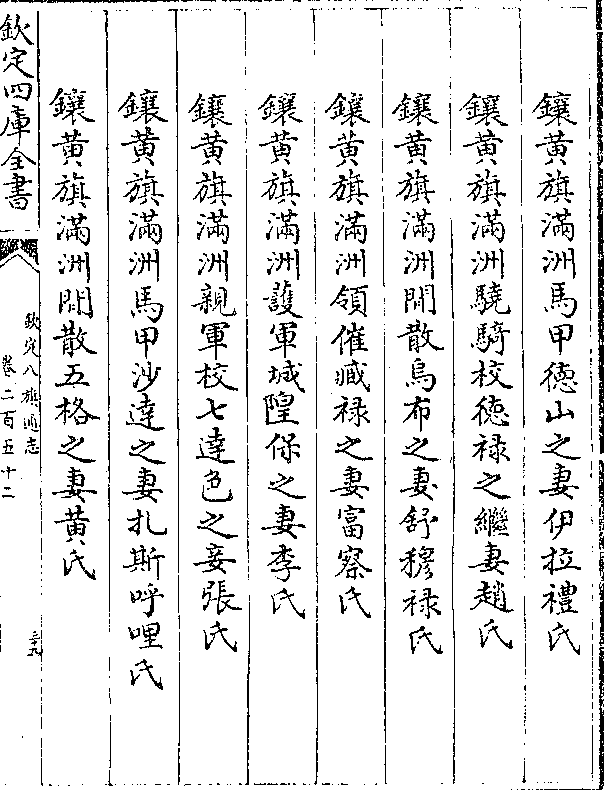 鑲黃旗滿洲馬甲德山之妻伊拉禮氏
鑲黃旗滿洲驍騎校德禄之繼妻趙氏
鑲黃旗滿洲閒散烏布之妻舒穆禄氏
鑲黃旗滿洲領催臧禄之妻富察氏
鑲黃旗滿洲護軍城隍保之妻李氏
鑲黃旗滿洲親軍校七達色之妾張氏
鑲黃旗滿洲馬甲沙達之妻扎斯呼哩氏
鑲黃旗滿洲閒散五格之妻黃氏
欽定四庫全書
欽定八旗通志
卷二百五十二
三十九